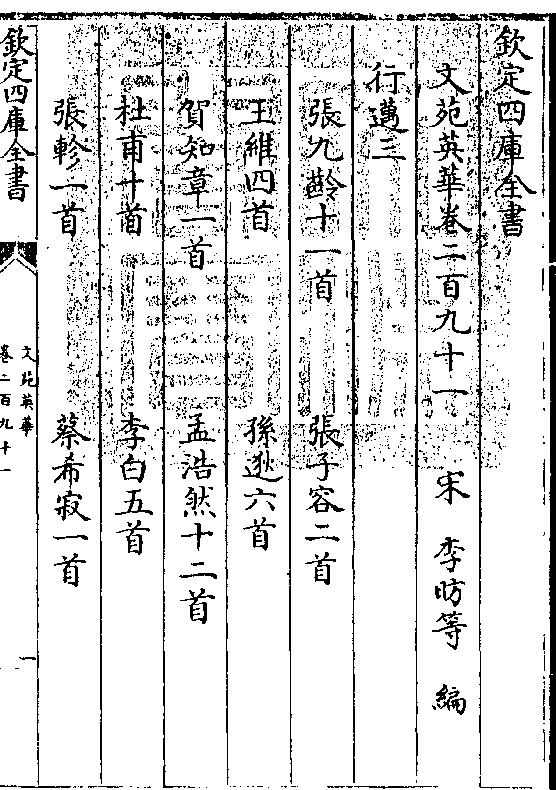 欽定四庫全書
文苑英華卷二百九十一 宋 李昉等 編
行邁三
張九齡十一首 張子容二首
王維四首 孫逖六首
賀知章一首 孟浩然十二首
杜甫十首 李白五首
張軫一首 蔡希寂一首
欽定四庫全書
文苑英華
卷二百九十一
一